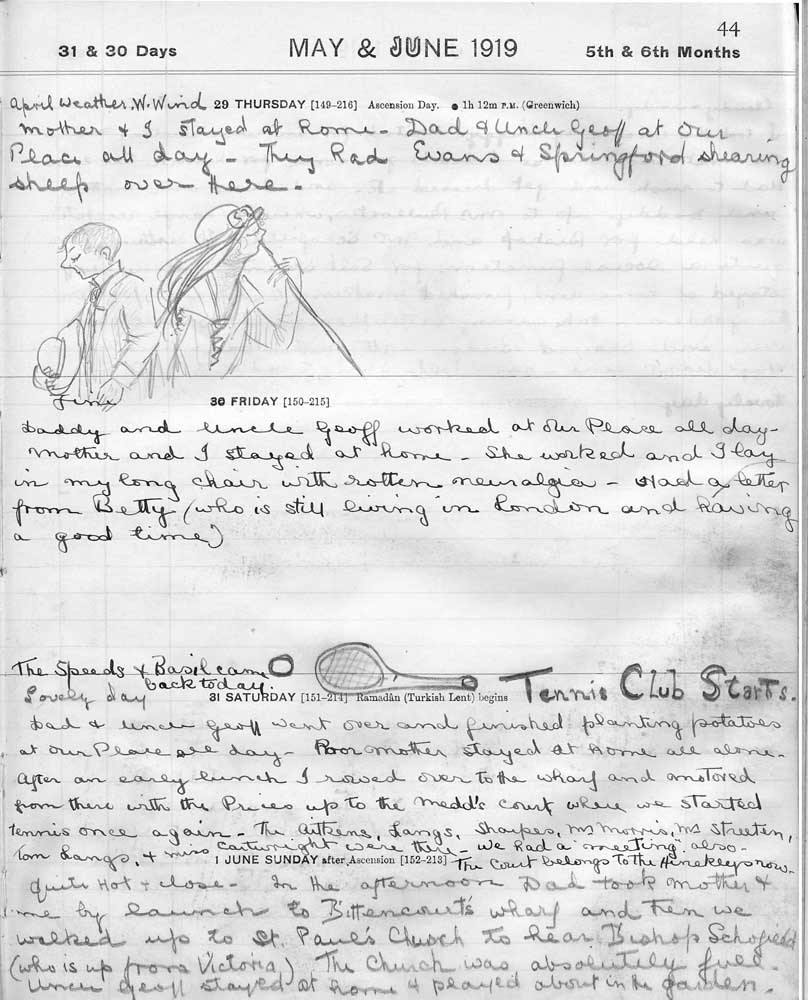 44
31 & 30 Days MAY & JUNE 1919 5th & 6th Months
April Weather. W. Wind 29 THURSDAY [149–216] Ascension Day. ● 1h 12m P.M. (Greenwich)
Mother & I stayed at home – Dad & Uncle Geoff at Our
Place all day – They had Evans & Springford shearing
sheep over Here –
Fine 30 FRIDAY [150–215]
Daddy and Uncle Geoff worked at Our Place all day–
Mother and I stayed at home – She worked and I lay
in my long chair with rotten neuralgia – Had a letter
from Betty (who is still living in London and having
a good time)
The Speeds & Basil came
back today.
Lovely day 31 SATURDAY [151–214] Ramadân (Turkish Lent) begins Tennis Club Starts.
Dad & Uncle Geoff went over and finished planting potatoes
at Our Place all day – Poor Mother stayed at home all alone –
After an early lunch I rowed over to the wharf and motored
from there with the Prices up to the Medd's court where we started
tennis once again – The Aitkens, Langs, Sharpes, Ms Morris, Ms Streeten,
Tom Langs, & Miss Cartwright were there – we had a meeting also –
1 JUNE SUNDAY after Ascension [152–213] The Court belongs to the Hinekleys now –
Quite Hot & close – In the afternoon Dad took Mother &
me by launch to Bittencourt's wharf and then we
walked up to St. Paul's Church to hear Bishop Schofield
(who is up from Victoria) The Church was absolutely full.
Uncle Geoff stayed at home & played about in the garden.